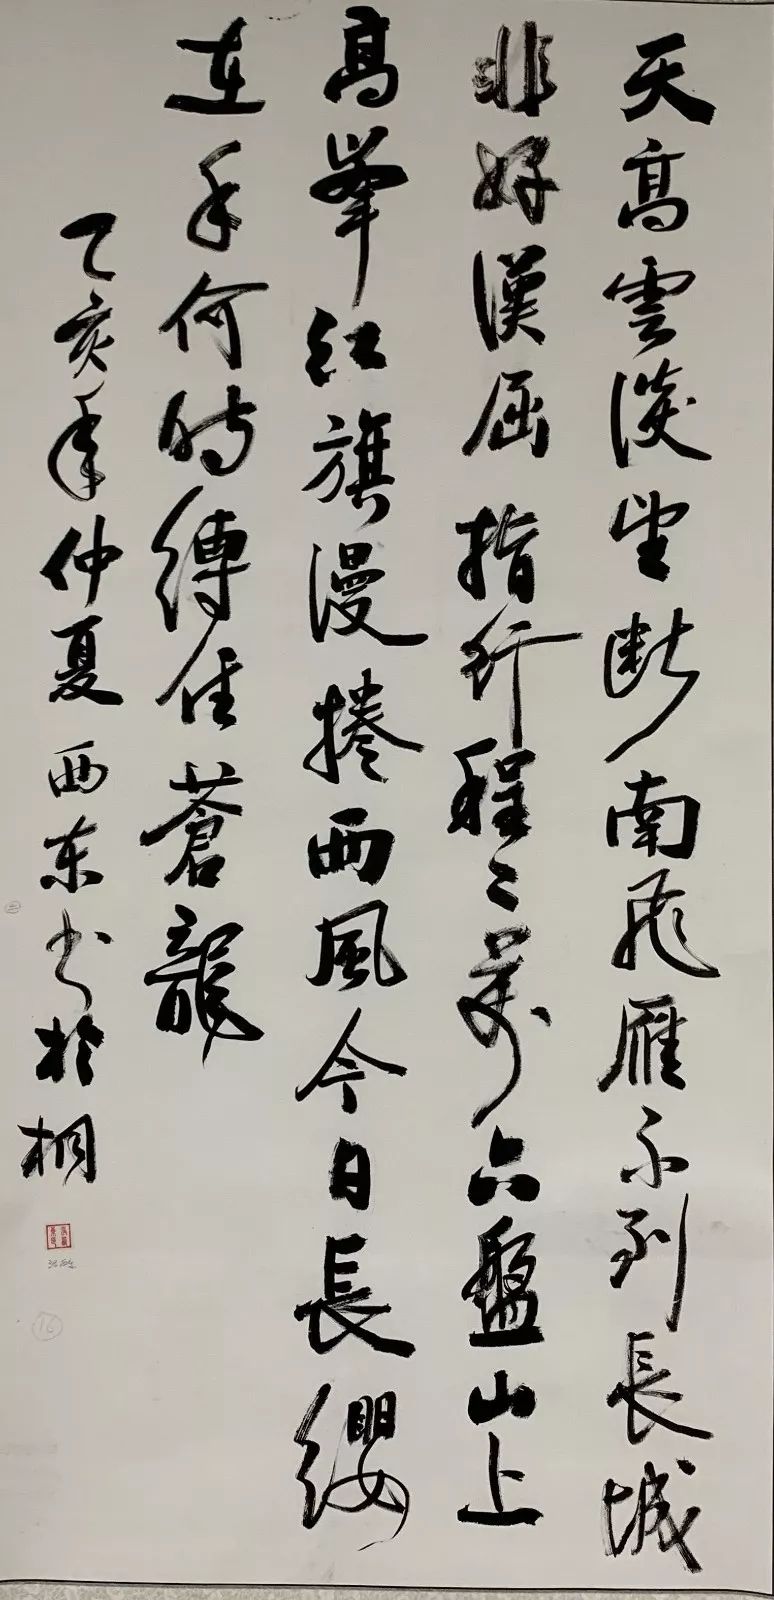 天高雲淡望断南飛雁不到長城
非好漢屈指行程二萬六盤山上
高峯紅旗漫捲西風今日長纓
在手何時縛住蒼龍
乙亥年仲夏西东书於桐
16